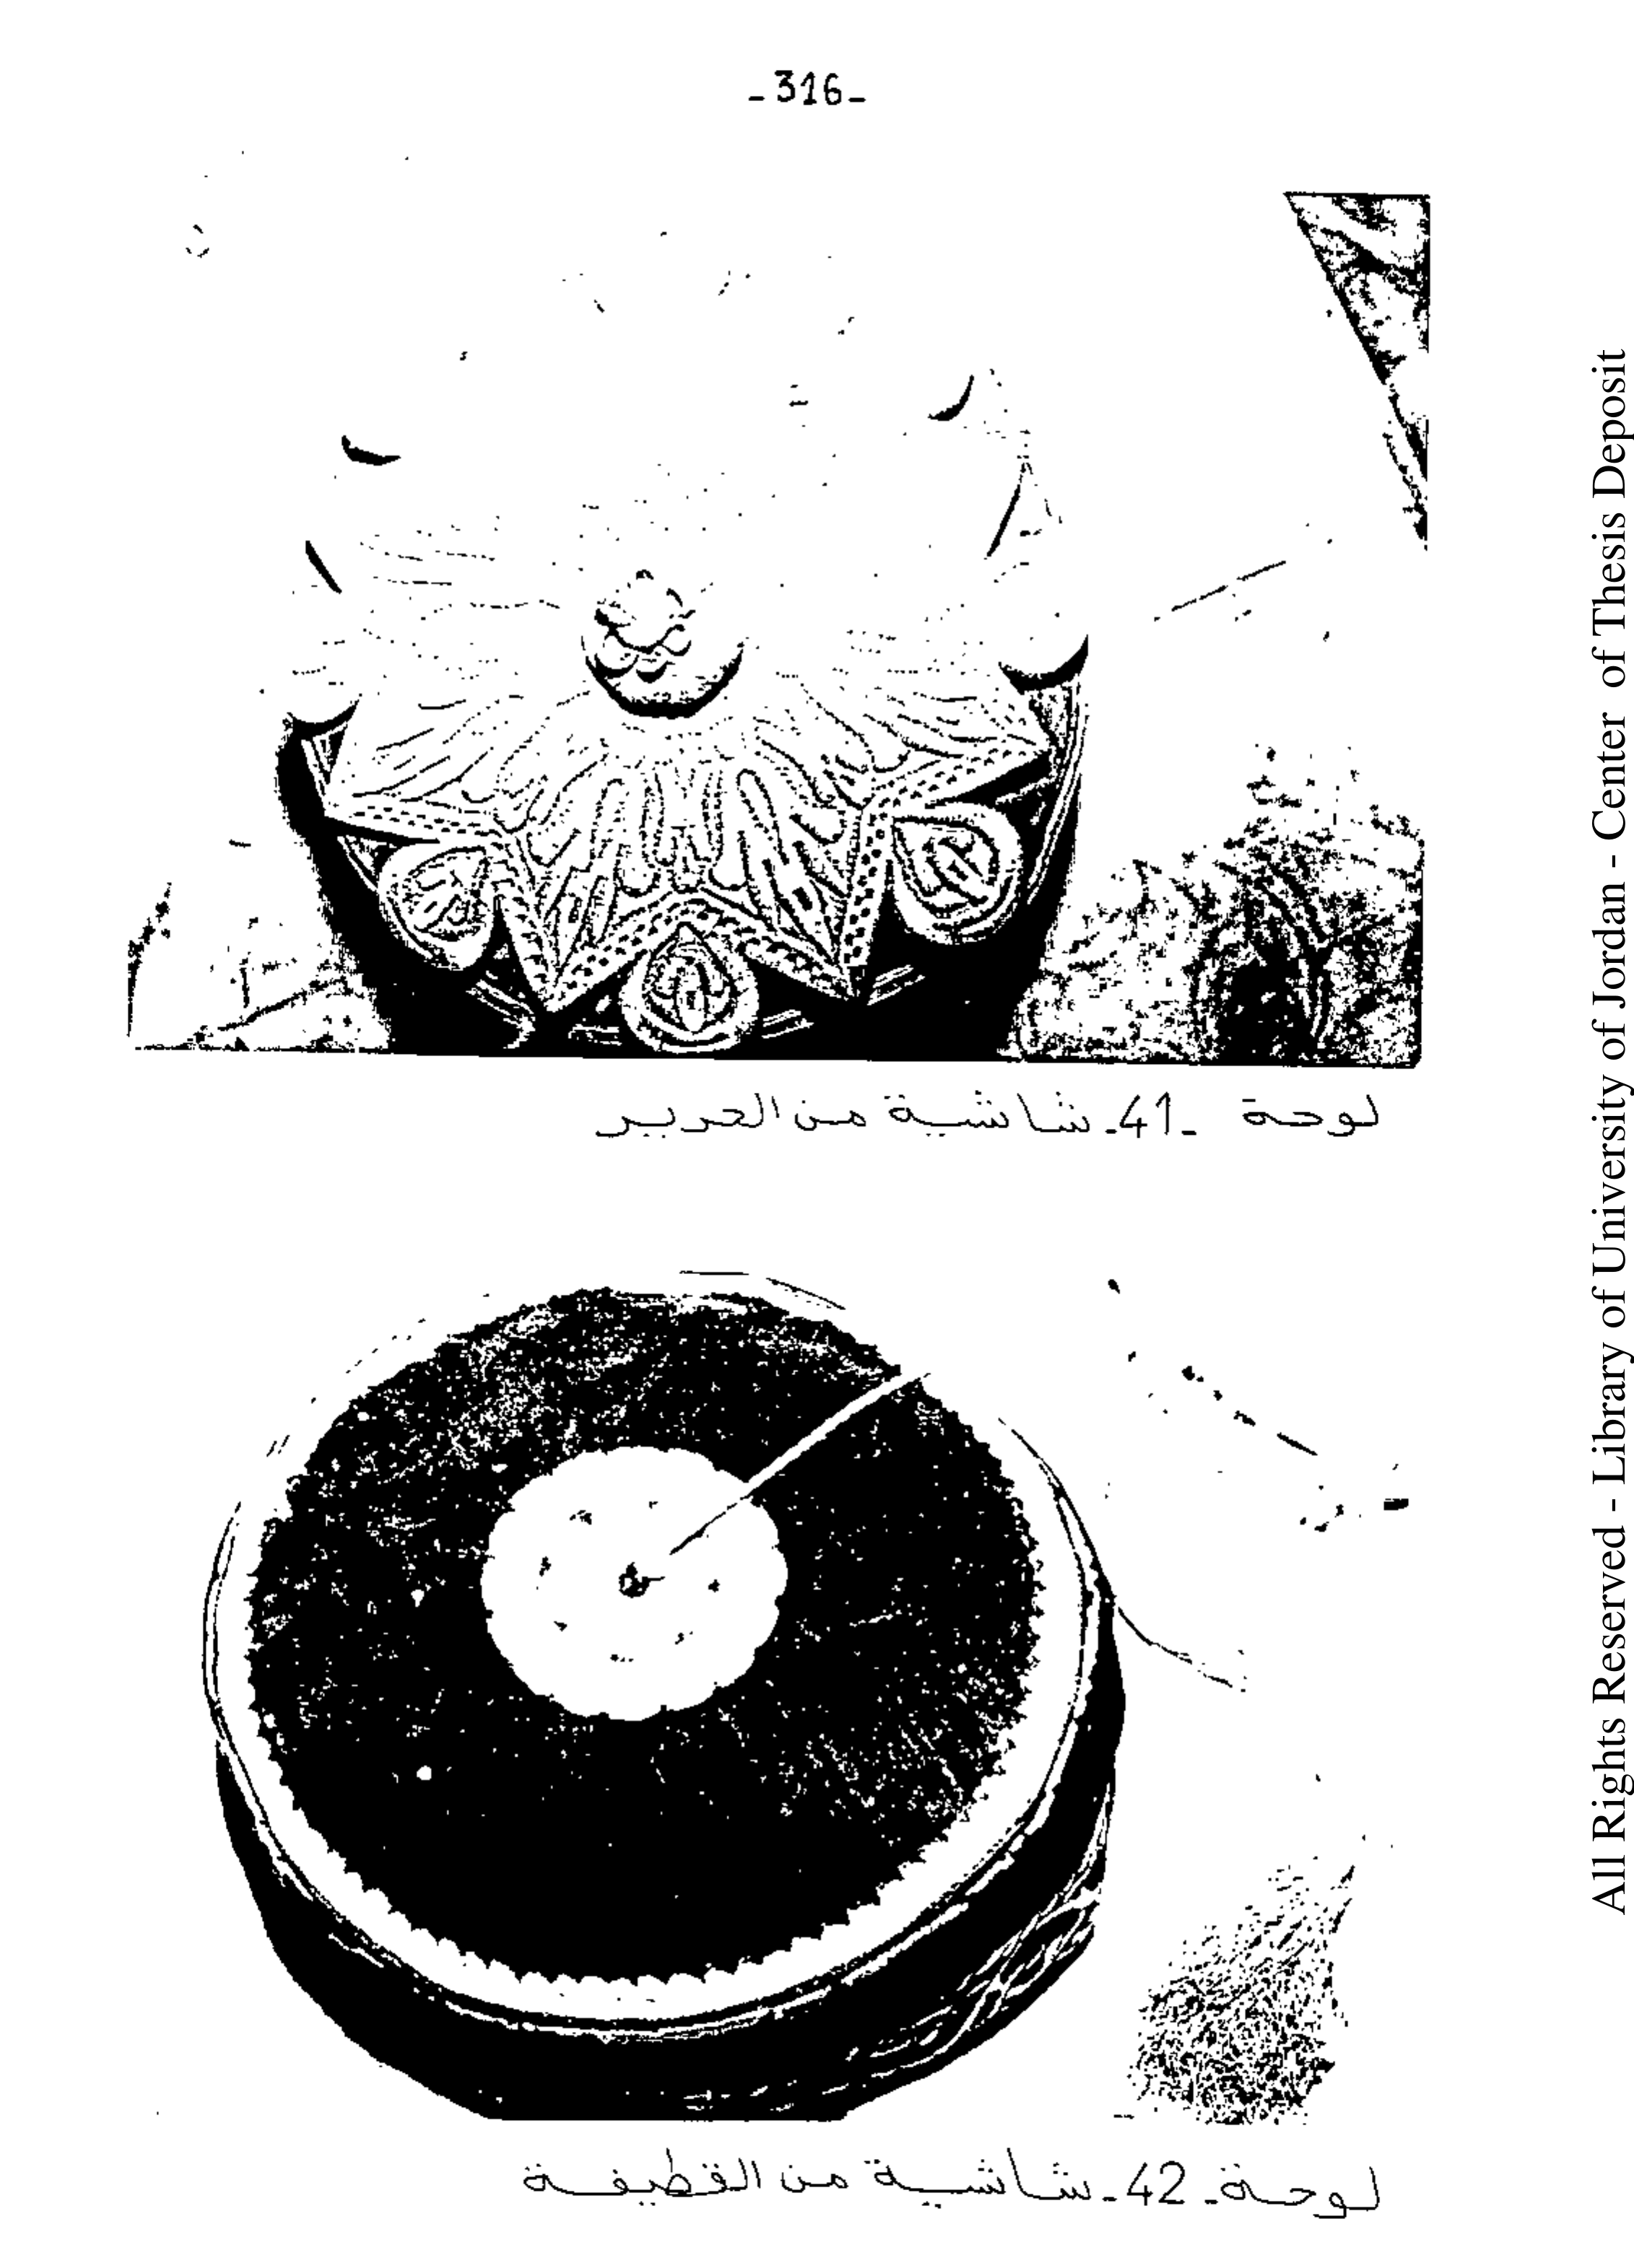 -316-
لوحة -41- شاشية من الحرير
لوحة -42- شاشية من القطيفة
All Rights Reserved - Library of University of Jordan - Center of Thesis Deposit